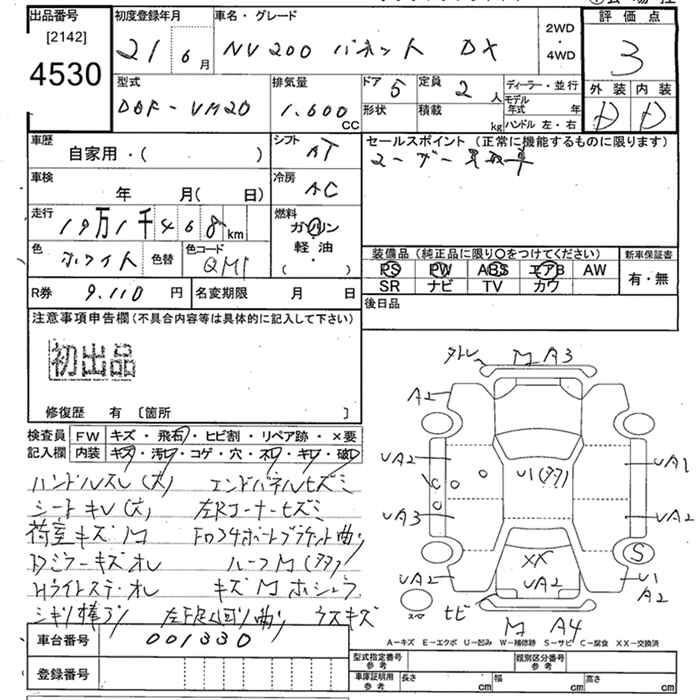 出品番号 初度登録年月 車名・グレード 2WD・4WD 評価点
[2142]
4530
21 6月 NV200 バネット DX
3
型式 排気量 ドア 5 定員 2人 ディーラー・並行 外装 内装
DBF-VM20 1.600CC 形状 積載 kg モデル年式 年 ハンドル 左・右 D D
車歴 シフト セールスポイント(正常に機能するものに限ります)
自家用・( ) AT ユーザー買取車
車検 冷房
年 月( 日) AC
走行 燃料
19万1千468km ガソリン・軽油・( )
色 色替 色コード 装備品(純正品に限り○をつけてください) 新車保証書
ホワイト QM1 PS PW ABS エアB AW 有・無
SR ナビ TV カワ
R券 9.110円 名変期限 月 日 後日品
注意事項申告欄(不具合内容等は具体的に記入して下さい)
初出品
修復歴 有 〔箇所 〕
検査員 FW キズ・飛石・ヒビ割・リペア跡・×要
記入欄 内装 キズ・汚レ・コゲ・穴・ネレ・キレ・破レ
ハンドルスレ(大) エンドパネルヒズミ
シートキレ(大) 左Rコーナーヒズミ
荷室キズM Fロアサポートブラケット曲り
Dミラーキズオレ ルーフM(タタ)
Hライトステーオレ キズMホシュウ
シキリ棒ナシ ウスキズ
車台番号 001330
登録番号
M A3
A2
UA2 U1(タタ) UA1
UA3 UA2
XX S
UA2 UA2 U1
A2
ヒビ M A4
A－キズ E－エクボ U－凹み W－補修跡 S－サビ C－腐食 XX－交換済
型式指定番号 参考 類別区分番号 参考
車庫証明用 参考 長さ cm 幅 cm 高さ cm